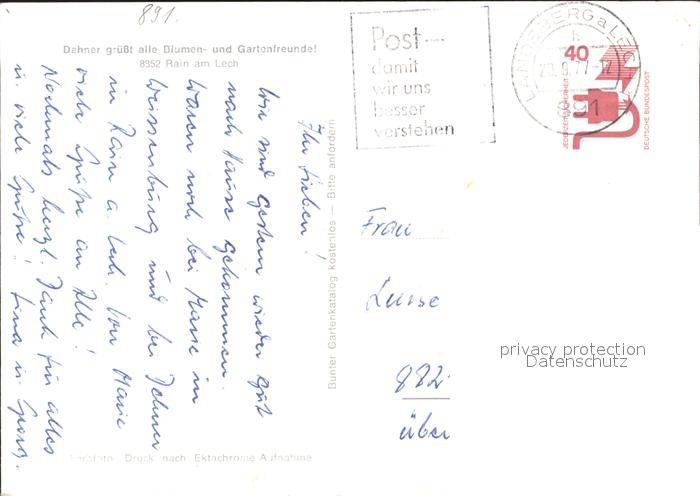 891.
Dehner grüßt alle Blumen- und Gartenfreunde!
8852 Rain am Lech
Ihr Lieben!
Wir sind gestern wieder gut
nach Hause gekommen.
Waren noch bei Marie in
Weissenburg und bei Dehner
in Rain a. Lech. Von Marie
viele Grüße an Alle!
Nochmals herzl. Dank für alles
u. viele Grüße! Lina u. Georg.
Bunter Gartenkatalog kostenlos — Bitte anfordern
Farbfoto Druck nach Ektachrome-Aufnahme
Post —
damit
wir uns
besser
verstehen
LANDSBERG a LECH
40
JEDERZEIT SICHERHEIT
DEUTSCHE BUNDESPOST
Frau
Luise
882
über
privacy protection
Datenschutz